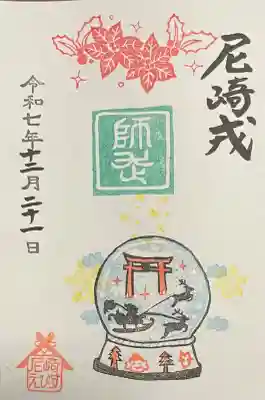 尼崎戎
師走
令和七年十二月二十一日
尼崎えびす